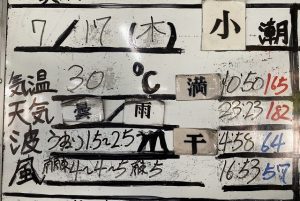 7/17(木) 小潮
気温 30 ℃ 満 10:50 165
天気 曇/雨 23:23 182
波 うねり1.5~2.5m 干 4:58 64
風 南東4~4~5 南東5 16:53 57